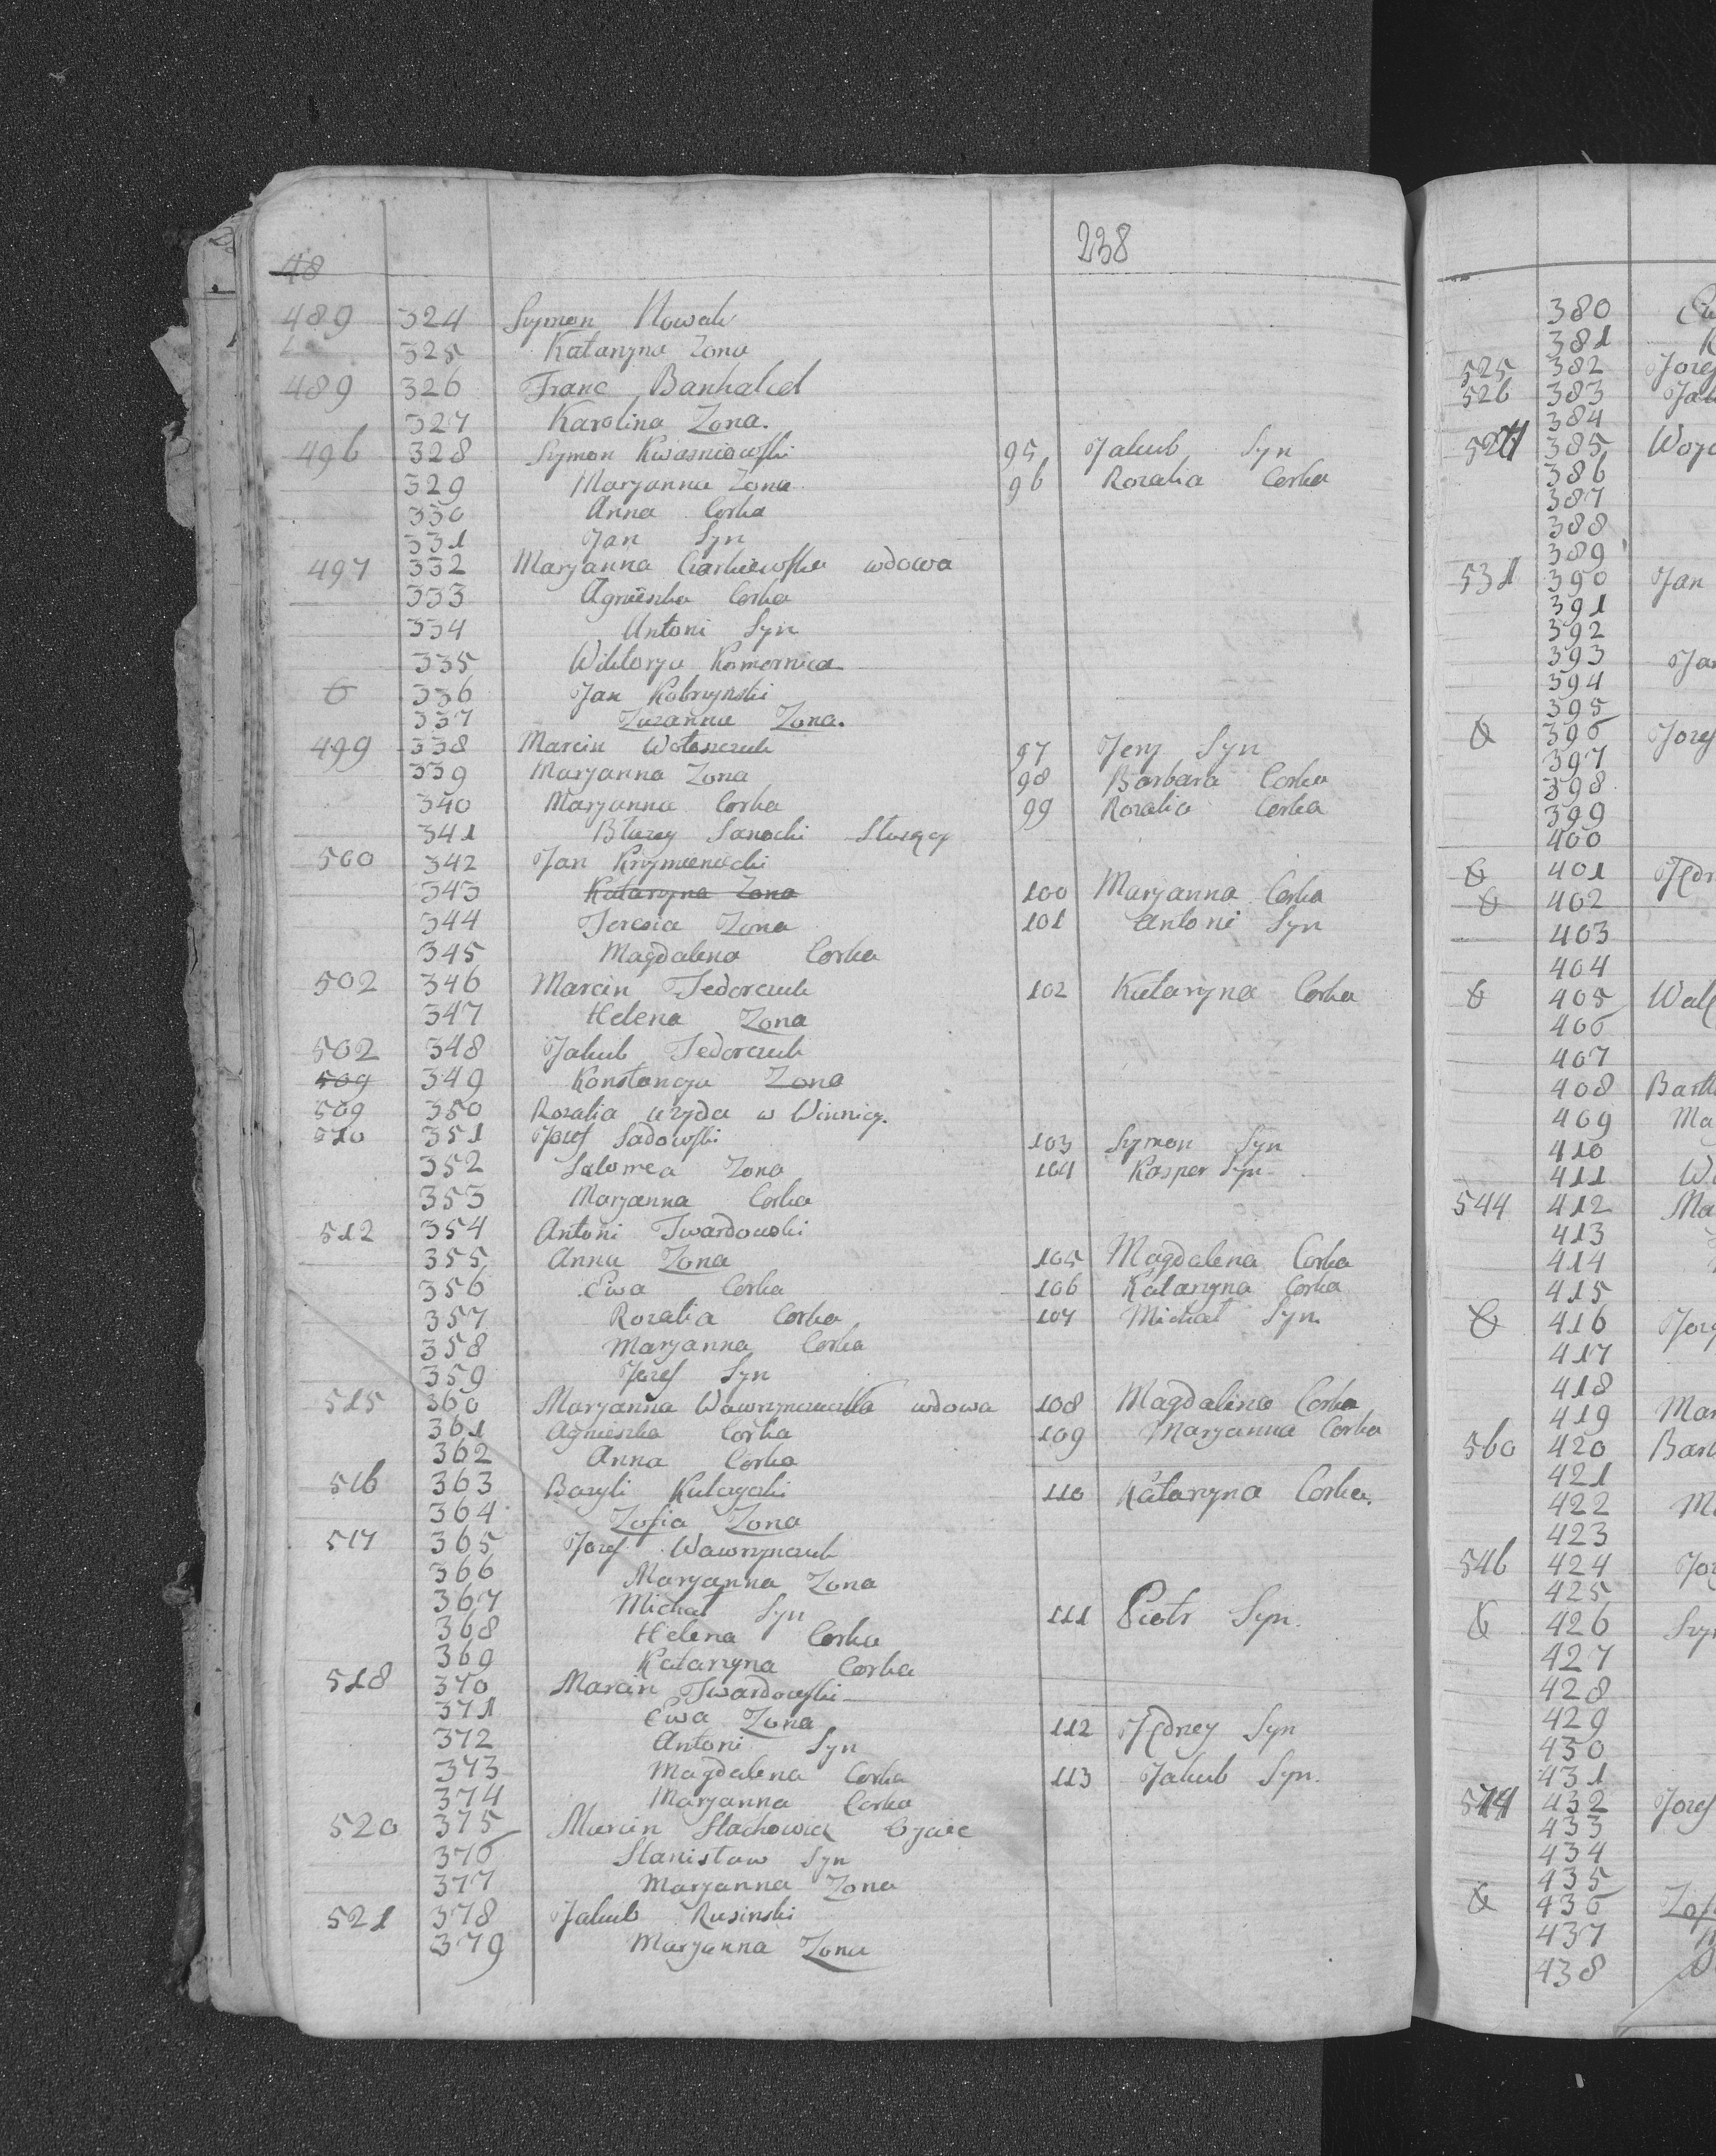 238
48
489 324 Symon Nowak
325 Kataryna Zona
489 326 Franc
327 Karolina Zona.
496 328 Symon Kwasniewski 95 Jakub Syn
329 Maryanna Zona 96 Rozalia Corka
330 Anna Corka
331 Jan Syn
497 332 Maryanna wdowa
333 Agnieszka Corka
334 Antoni Syn
335 Wiktorya Komornica
336 Jan Kobrzynski
337 Zuzanna Zona.
499 338 Marcin Wołoszczuk 97 Jerzy Syn
339 Maryanna Zona 98 Barbara Corka
340 Maryanna Corka 99 Rozalia Corka
341 Błazey Sanocki Słuzący
500 342 Jan
343 Kataryna Zona 100 Maryanna Corka
344 Teresia Zona 101 Antoni Syn
345 Magdalena Corka
502 346 Marcin Fedorczuk 102 Kataryna Corka
347 Helena Zona
502 348 Jakub Fedorczuk
509 349 Konstancya Zona
509 350 Rozalia w Winnicy.
510 351 Jozef Sadowski 103 Symon Syn
352 Salomea Zona 104 Kasper Syn
353 Maryanna Corka
512 354 Antoni Twardowski
355 Anna Zona 105 Magdalena Corka
356 Ewa Corka 106 Kataryna Corka
357 Rozalia Corka 107 Michał Syn
358 Maryanna Corka
359 Jozef Syn
515 360 Maryanna wdowa 108 Magdalena Corka
361 Agnieszka Corka 109 Maryanna Corka
362 Anna Corka
516 363 Bazyli Kulczycki 110 Kataryna Corka.
364 Zofia Zona
517 365 Jozef Wawrzynczuk
366 Maryanna Zona
367 Michał Syn 111 Piotr Syn.
368 Helena Corka
369 Kataryna Corka
518 370 Marcin Twardowski
371 Ewa Zona 112 Jędrzey Syn
372 Antoni Syn
373 Magdalena Corka 113 Jakub Syn.
374 Maryanna Corka
520 375 Marcin Stachowicz Oyciec
376 Stanisław Syn
377 Maryanna Zona
521 378 Jakub Rusinski
379 Maryanna Zona
380
381
525 382 Jozef
526 383
384
385
386
387
388
389
531 390 Jan
391
392
393
394
395
396 Jozef
397
398
399
400
401
402
403
404
405
406
407
408
409
410
411
544 412
413
414
415
416
417
418
419
560 420
421
422
423
546 424
425
426
427
428
429
430
431
432 Jozef
433
434
435
436
437
438